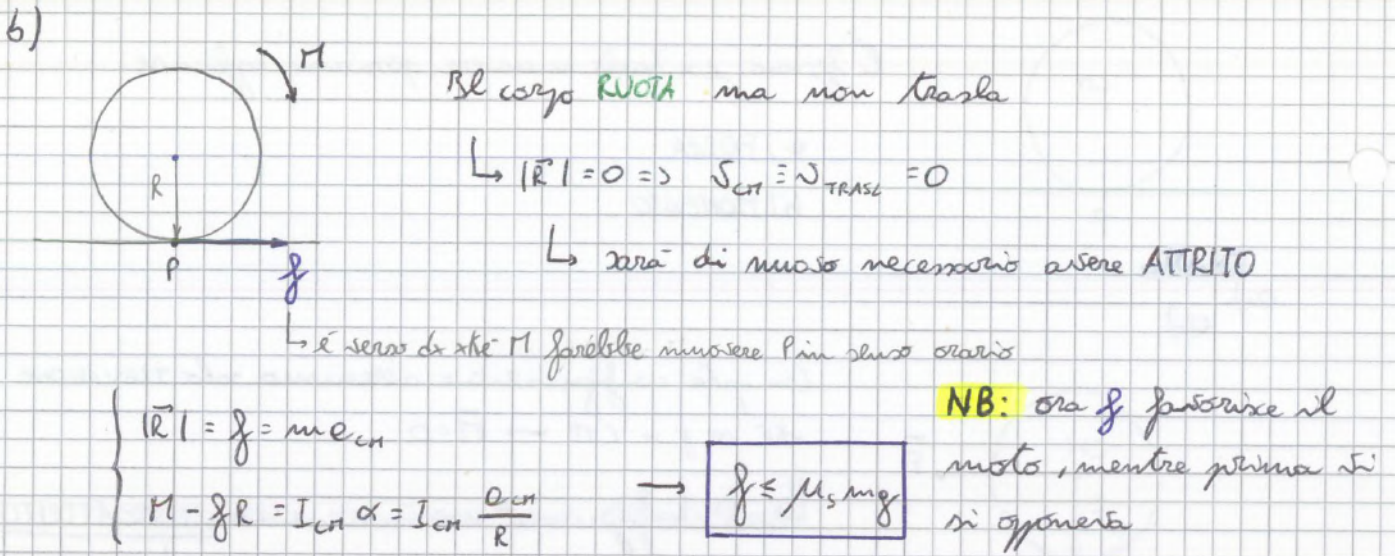 b)
M
Il corpo RUOTA ma non trasla
↳ |R⃗| = 0 => v_CM ≡ v_TRASL = 0
R
↳ sarà di nuovo necessario avere ATTRITO
P
f
↳ è verso dx xké M farebbe muovere P in senso orario
|R⃗| = f = m a_CM
M - fR = I_CM α = I_CM a_CM / R
→ f ≤ μ_s mg
NB: ora f favorisce il
moto, mentre prima vi
si opponeva